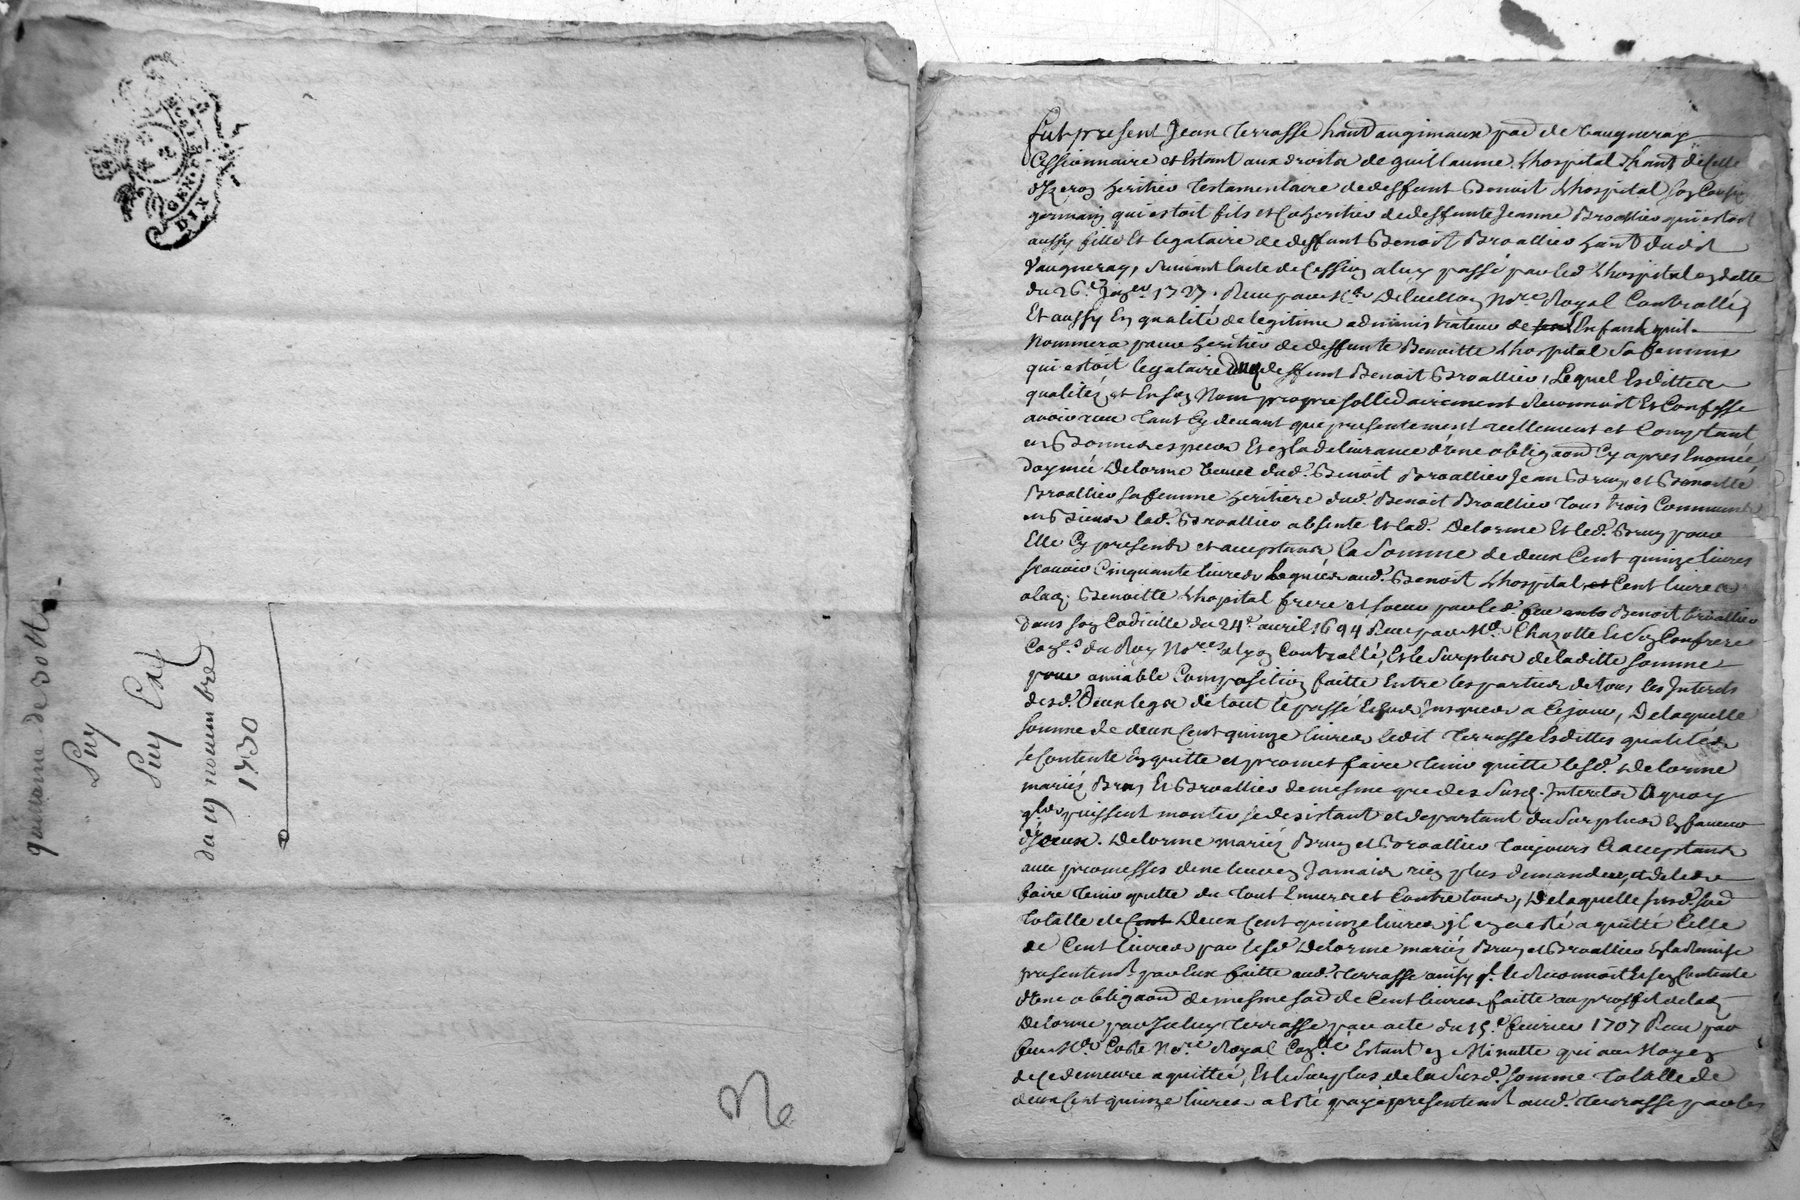 GEN
DIX
quittance de 30 lt
Puy
Puy Cad
du 19 novembre
1730
Fut present Jean terrasse hant au gimaux par de vaugneray
Cessionnaire et Estant aux droits de guillaume Lhospital hant de Celle
d'Izeron heritier testamentaire de deffunt Benoit Lhospital son Cousin
germain qui estoit fils et Coheritier de deffunte Jeanne Broallier qui estoit
aussy fille Et legataire de deffunt Benoit Broallier hant dudit
Vaugneray, suivant lacte de Cession a luy passé par led Lhospital en datte
du 26e 1727. Receu par Me Nore Royal Controllé,
Et aussy En qualité de legitime administrateur de Enfans quil
Nommera pour heritier de deffunte Benoitte Lhospital sa femme
qui estoit legataire deffunt Benoit Broallier, Lequel Esdittes
qualités et En son Nom propre sollidairement Reconnoit Et Confesse
avoir receu tant Cy devant que presentement reellement et Comptant
en Bonnes especes Et en la delivrance d'une obligaon Cy apres Enoncée,
daymée Delorme veuve dud. Benoit Broallier Jean Bruy, et Benoitte
Broallier sa femme heritiere dud. Benoit Broallier tous trois Communs
en Biens lad. Broallier absente Et lad. Delorme Et led. Bruy pour
Elle Cy presents et acceptants La Somme de deux Cent quinze livres
scavoir Cinquante livres Leguées aud. Benoit Lhospital, et Cent livres
a lad. Benoitte Lhopital frere et soeur par led. feu Benoit broallier
dans son Codicille du 24e avril 1694 Receu par Me Chazotte Et son Confrere
du Roy Nores a lyon Controllé, Et le Surplus de laditte somme
pour amiable Composition faitte Entre les parties de tous les Interets
desd. deux legs de tout le passé Echus Jusques a Ce jour, De laquelle
somme de deux Cent quinze livres ledit terrasse Esdittes qualités
se Contente En quitte et promet faire tenir quitte lesd. Delorme
mariés Bruy Et Broallier de mesme que des Susd. Interets a quoy
qls puissent monter se desistant et departant du Surplus En faveur
d'iceux. Delorme mariés Bruy et Broallier toujours acceptants
aux promesses de ne leur en Jamais rien plus demander, et de les
faire tenir quitte de tout Envers et Contre tous, De laquelle susd. som
totalle de Cent Deux Cent quinze livres il en a esté aquitté Celle
de Cent livres par lesd. Delorme mariés Bruy et Broallier En la Remise
presentemt par Eux faitte aud. terrasse ainsy ql le Reconnoit Et sen Contente
d'une obligaon de mesme som de Cent livres faitte au proffit de lad.
Delorme par Icelluy terrasse par acte du 15e fevrier 1707 Receu par
feu Me Coste Nore Royal Estant en Minutte qui au Moyen
de Ce demeure aquittée, Et le Surplus de la Susd. somme totalle de
deux Cent quinze livres a Esté payé presentemt aud. terrasse par les